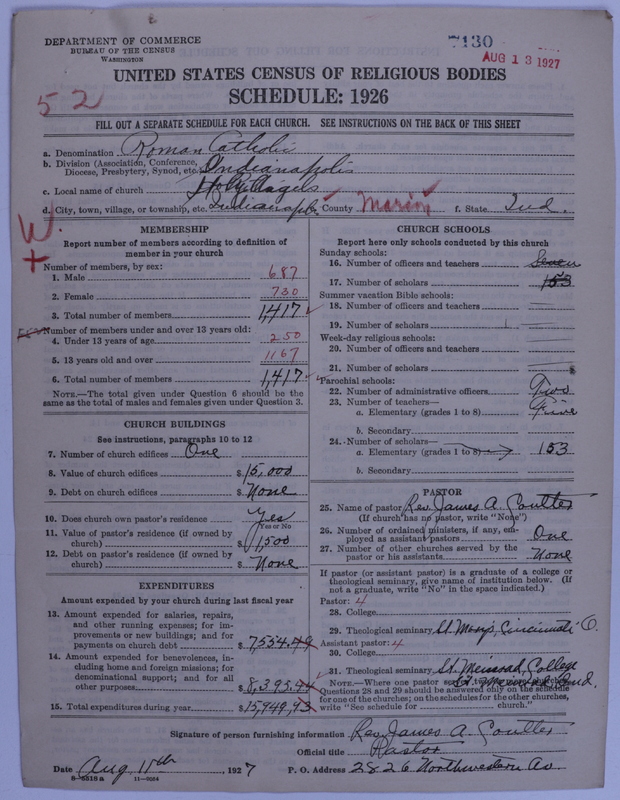 DEPARTMENT OF COMMERCE
BUREAU OF THE CENSUS
WASHINGTON
7130
AUG 13 1927
UNITED STATES CENSUS OF RELIGIOUS BODIES
SCHEDULE: 1926
52
FILL OUT A SEPARATE SCHEDULE FOR EACH CHURCH. SEE INSTRUCTIONS ON THE BACK OF THIS SHEET
a. Denomination Roman Catholic
b. Division (Association, Conference, Diocese, Presbytery, Synod, etc. Indianapolis
c. Local name of church Holy Angels
d. City, town, village, or township, etc. Indianapolis County Marion f. State Ind.
W.
+
MEMBERSHIP
Report number of members according to definition of
member in your church
Number of members, by sex:
1. Male 687
2. Female 730
3. Total number of members 1,417
Number of members under and over 13 years old:
4. Under 13 years of age 250
5. 13 years old and over 1167
6. Total number of members 1,417
NOTE.—The total given under Question 6 should be
same as the total of males and females given under Question 3.
CHURCH BUILDINGS
See instructions, paragraphs 10 to 12
7. Number of church edifices One
8. Value of church edifices $15,000
9. Debt on church edifices $None
10. Does church own pastor's residence Yes
Yes or No
11. Value of pastor's residence (if owned by
church) $1,500
12. Debt on pastor's residence (if owned by
church) $None
EXPENDITURES
Amount expended by your church during last fiscal year
13. Amount expended for salaries, repairs,
and other running expenses; for im-
provements or new buildings; and for
payments on church debt $7554.49
14. Amount expended for benevolences, in-
cluding home and foreign missions;
denominational support; and for all
other purposes $8,395.44
15. Total expenditures during year $15,949.93
CHURCH SCHOOLS
Report here only schools conducted by this church
Sunday schools:
16. Number of officers and teachers Seven
17. Number of scholars 153
Summer vacation Bible schools:
18. Number of officers and teachers
19. Number of scholars
Week-day religious schools:
20. Number of officers and teachers
21. Number of scholars
Parochial schools:
22. Number of administrative officers Two
23. Number of teachers—
a. Elementary (grades 1 to 8) Five
b. Secondary
24. Number of scholars—
a. Elementary (grades 1 to 8) 153
b. Secondary
PASTOR
25. Name of pastor Rev. James A. Coulter
(If church has no pastor, write "None")
26. Number of ordained ministers, if any, em-
ployed as assistant pastors One
27. Number of other churches served by the
pastor or his assistants None
If pastor (or assistant pastor) is a graduate of a college or
theological seminary, give name of institution below. (If
not a graduate, write "No" in the space indicated.)
Pastor: 4
28. College
29. Theological seminary St. Mary's, Cincinnati O.
Assistant pastor: 4
30. College
31. Theological seminary St. Meinrad College
St. Meinrad, Ind.
NOTE.—Where one pastor
Questions 28 and 29 should be answered only on the schedule
for one of the churches; on the schedules for the other churches,
write "See schedule for church."
Signature of person furnishing information Rev. James A. Coulter
Official title Pastor
Date Aug. 11th, 1927 P. O. Address 2826 Northwestern Av
8-5518 a 11-9054